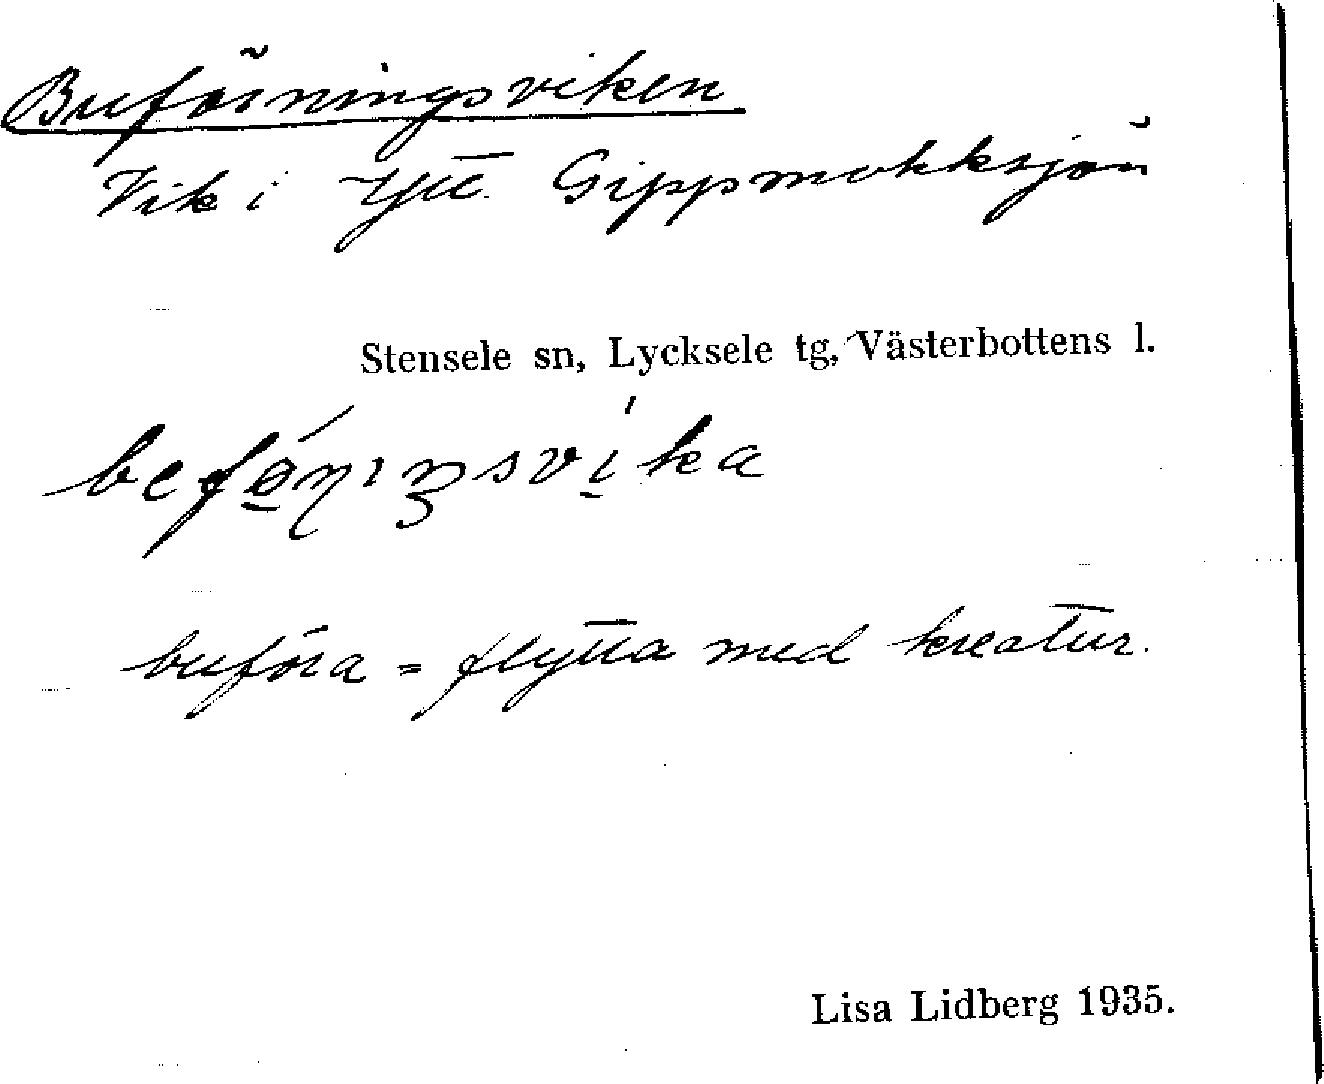 Buförningsviken
Vik i Ytt. Gippmokksjön
Stensele sn, Lycksele tg, Västerbottens l.
buföra = flytta med kreatur.
Lisa Lidberg 1935.